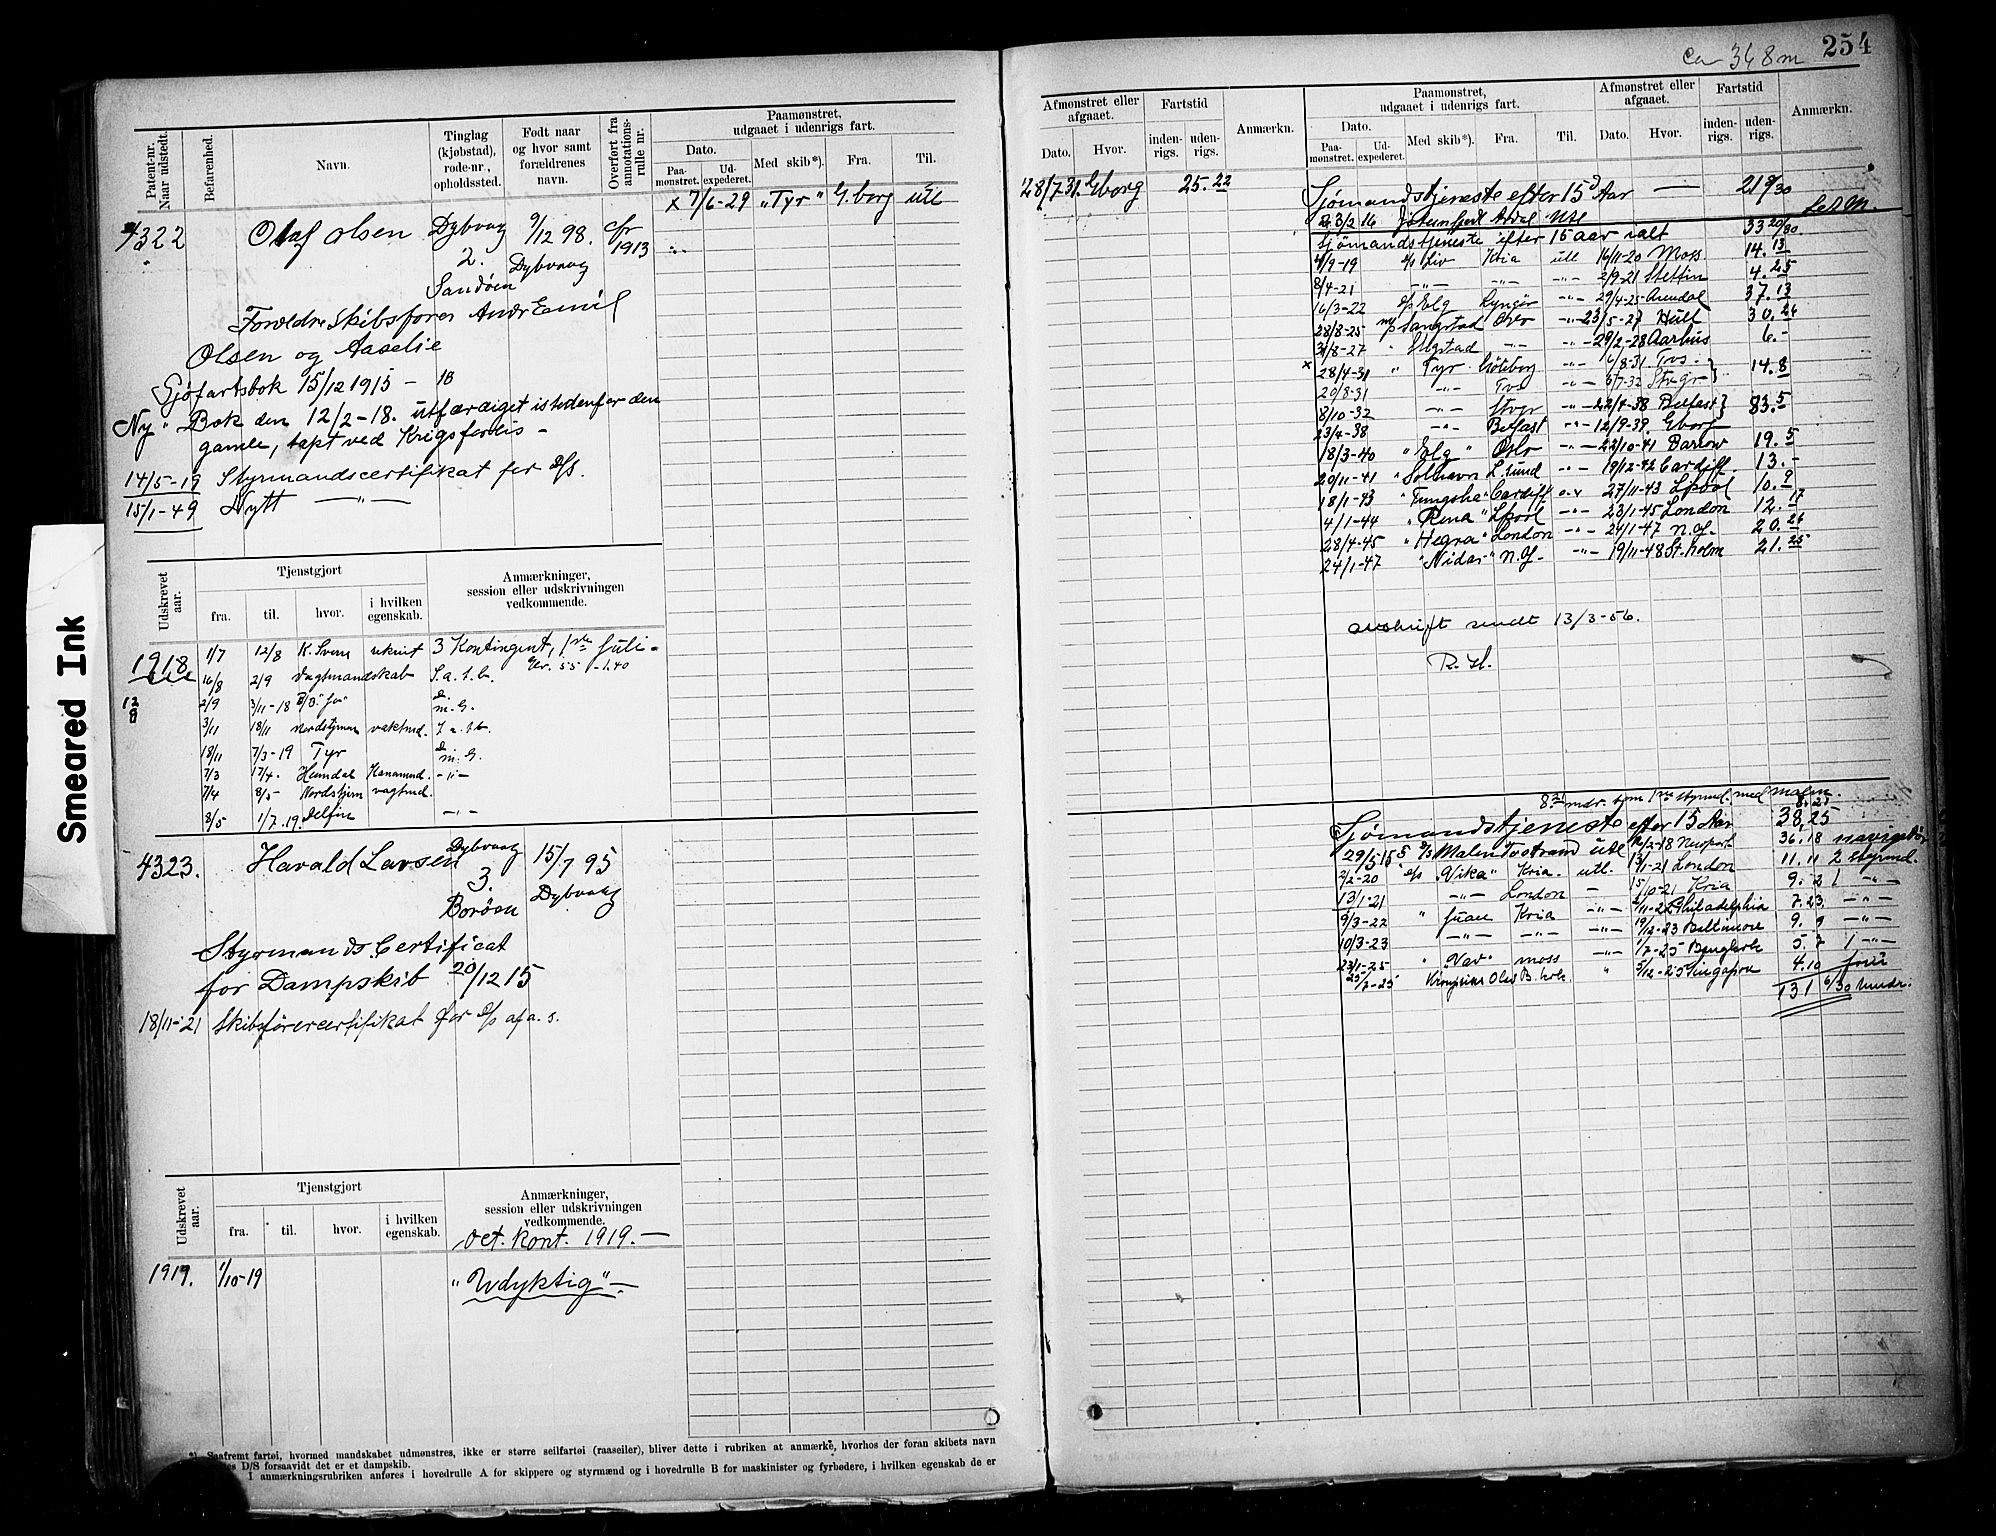 254
Ca 348 m
Patent-nr. Naar udstedt.
Befarenhed.
Navn.
Tinglag (kjøbstad), rode-nr., opholdssted.
Født naar og hvor samt forældrenes navn.
Overført fra annotationsrulle nr.
Paamønstret, udgaaet i udenrigs fart.
Dato.
Paamønstret.
Udexpederet.
Med skib*).
Fra.
Til.
x 7/6-29 „Tyr" G.borg utl
4322 Olaf Olsen Dybvaag 9/12 98. cfr 1913
2. Dybvaag
Sandöen
Foreldre Skibsfører Andr Emil
Olsen og Aaselie
Sjøfartsbok 15/12 1915 -
Ny " Bok den 12/2-18. utfærdiget istedenfor den
gamle, tapt ved Krigsforlis -
14/5-19 Styrmandscertifikat for D/S.
15/1-49 Nytt —"—
Udskrevet aar.
Tjenstgjort
fra.
til.
hvor.
i hvilken egenskab.
Anmærkninger, session eller udskrivningen vedkommende.
1918 1/7 12/8 K. Svern rekrut 3 Kontingent, 1ste Juli -
16/8 2/9 Vagtmandskab S.a.t.b.
2/9 3/11-18 m.G.
3/11 18/11 Nordstjernen vaktmd.
18/11 7/3-19 Tyr m.G.
7/3 17/4. Heimdal Kanonmd. -"-
7/4 8/5- Nordstjern vagtmd.
8/5 1/7.19. Delfin -"-
4323. Harald Larsen Dybvaag 15/7 95
3. Dybvaag
Borøen
Styrmands Certificat
for Dampskib 20/12 15
18/11-21 Skibsførercertifikat for D/S af a. s.
Udskrevet aar.
Tjenstgjort
fra.
til.
hvor.
i hvilken egenskab.
Anmærkninger, session eller udskrivningen vedkommende.
Oct. Kont. 1919. —
1919. 1/10-19 „Udyktig" —
*) Saafremt fartøi, hvormed mandskabet udmønstres, ikke er større seilfartøi (raaseiler), bliver dette i rubriken at anmærke, hvorhos der foran skibets navn
D/S forsaavidt det er et dampskib.
I anmærkningsrubriken anføres i hovedrulle A for skippere og styrmænd og i hovedrulle B for maskinister og fyrbødere, i hvilken egenskab de er
Afmønstret eller afgaaet.
Dato.
Hvor.
Fartstid
indenrigs.
udenrigs.
Anmærkn.
Paamønstret, udgaaet i udenrigs fart.
Dato.
Paamønstret.
Udexpederet.
Med skib*).
Fra.
Til.
Afmønstret eller afgaaet.
Dato.
Hvor.
Fartstid
indenrigs.
udenrigs.
Anmærkn.
28/7 31. Gborg 25.22
Sjømandstjeneste efter 15 Aar — 21 9/30
3/2 16 Utl
Sjömandstjeneste efter 15 aar ialt 33 20/30
4/9-19 Liv Kria utl 16/11-20 Moss 14.13
8/4-21 -"- -"- -"- 2/9-21 Stettin 4.25
16/3-22 D/S Elg Lyngör -"- 29/4-25 Arendal 37.13
28/8-25 Oslo -"- 23/5-27 Hull 30.26
31/8-27 -"- -"- 29/2-28 Aarhus 6.-
x 28/4-31 " Tyr Göteborg -"- 6/8-31 Tvs.
20/8-31 -"- Tvs -"- 5/7-32 } 14.8
8/10-32 -"- -"- 22/4-38 Belfast }
23/4-38 -"- Belfast -"- 12/9-39. Gborg 83.5
18/3-40 " Elg " Oslo -"- 22/10-41 Barrow 19.5
20/11-41 "Solhavn L.sund -"- 19/12-42 Cardiff. 13.-
18/1-43 "Tungsha" Cardiff -"- 27/11-43 Lpool 10.9
4/1-44 " Rena " Lpool -"- 23/1-45 London 12.17
28/4-45 "Hegra" London -"- 24/1-47 N.Y. 20.26
24/1-47 "Nidar" N.Y. -"- 19/11-48 St.holm 21.25
avskrift sendt 13/3-56.
R.H.
8 mdr. som 1ste styrmd. med malm.
8.25
Sjømandstjeneste efter 15 Aar 38.25
29/5-15 Malm Tvstrand utl 16/2-18 Newport 36.18
2/2-20 D/S „Vika" Kria. utl. 13/1-21 London 11.11 2 styrmd.
13/1-21 -"- London — 15/10-21 Kria 9.2 1 -"-
9/3-22 " Juan Kria -"- Philadelphia 7.23 -"-
10/3-23 -"- -"- -"- 19/12-23 Baltimore 9.9 -"-
23/1-25 " „Vav" Moss -"- 1/7-25 5.7 1 -"-
25/7-25 Kronprins Olav B.holt " 5/12-25 Singapore 4.10
131 6/30 mndr.
Smeared Ink